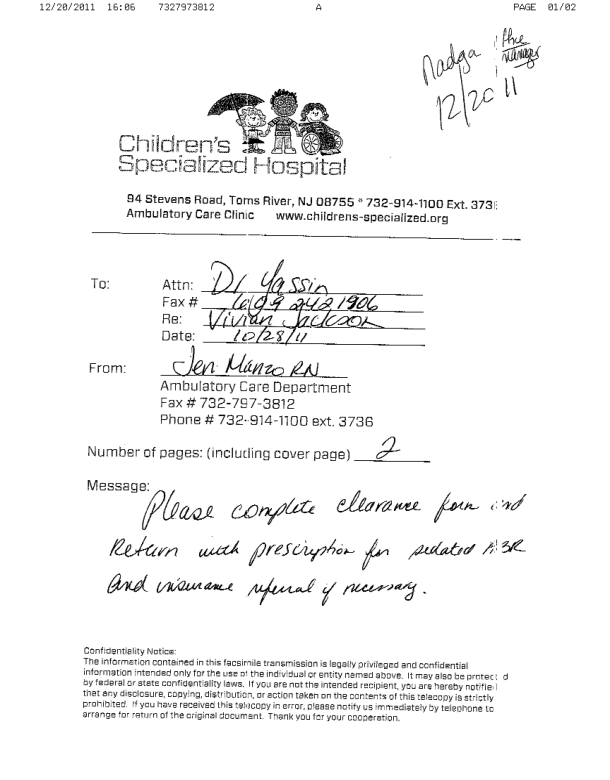 12/20/2011 16:06 7327973812 A PAGE 01/02
Nadga
12/20 11
Children's
Specialized Hospital
94 Stevens Road, Toms River, NJ 08755 * 732-914-1100 Ext. 373
Ambulatory Care Clinic www.childrens-specialized.org
To: Attn: Dr Yassin
Fax # 609 242 1906
Re: Vivian Jackson
Date: 10/28/11
From: Jen Manzo RN
Ambulatory Care Department
Fax # 732-797-3812
Phone # 732-914-1100 ext. 3736
Number of pages: (including cover page) 2
Message:
Please complete clearance form and
Return with prescription for sedated
and insurance referral if necessary.
Confidentiality Notice:
The information contained in this facsimile transmission is legally privileged and confidential
information intended only for the use of the individual or entity named above. It may also be protect d
by federal or state confidentiality laws. If you are not the intended recipient, you are hereby notified
that any disclosure, copying, distribution, or action taken on the contents of this telecopy is strictly
prohibited. If you have received this telecopy in error, please notify us immediately by telephone to
arrange for return of the original document. Thank you for your cooperation.